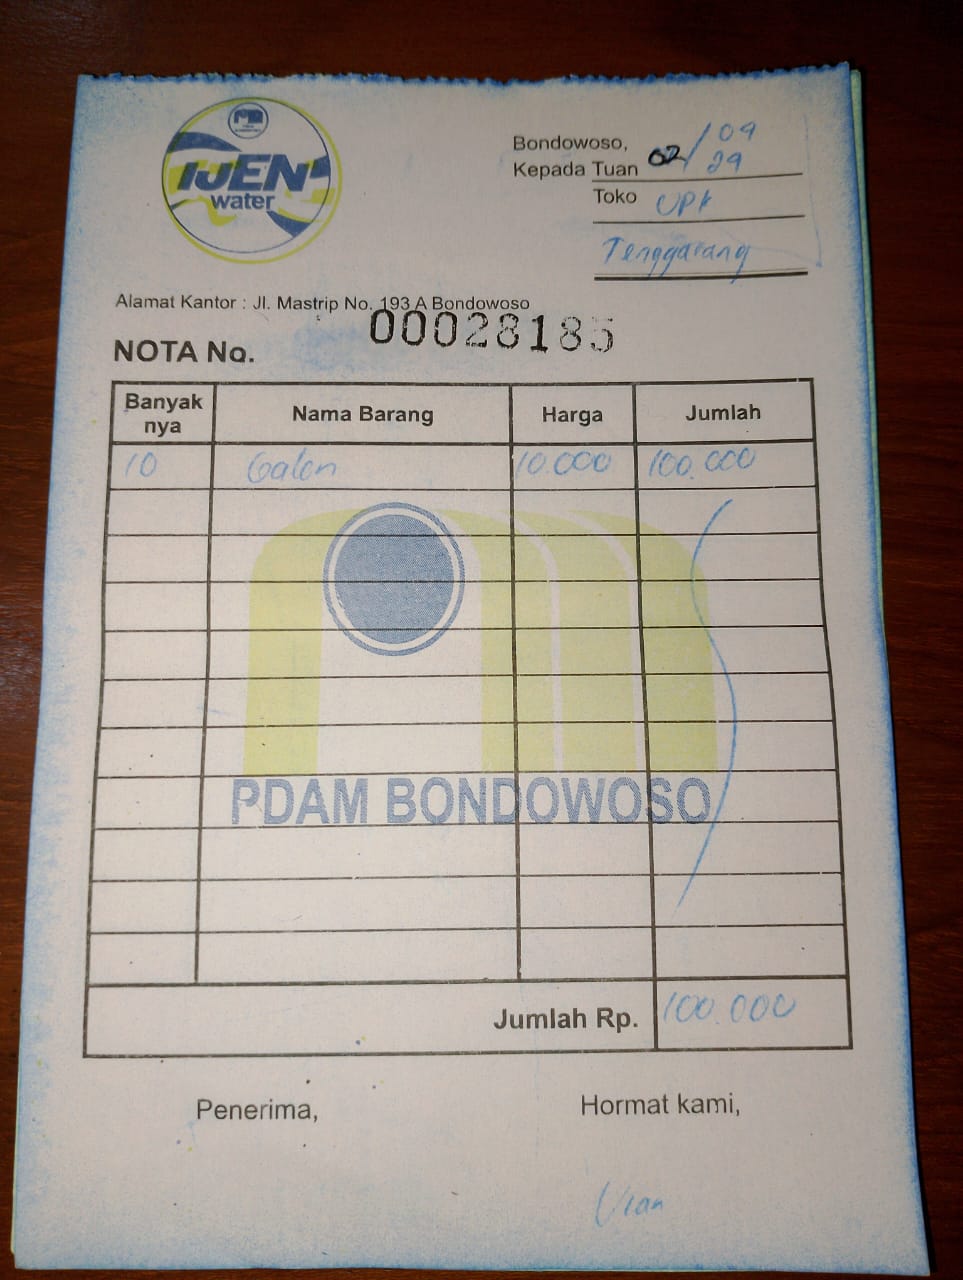 IJEN
water
Bondowoso, 02/09
Kepada Tuan 29
Toko UPK
Tenggarang
Alamat Kantor : Jl. Mastrip No. 193 A Bondowoso
NOTA No. 00028185
Banyak nya Nama Barang Harga Jumlah
10 Galon 10.000 100.000
PDAM BONDOWOSO
Jumlah Rp. 100.000
Penerima, Hormat kami,